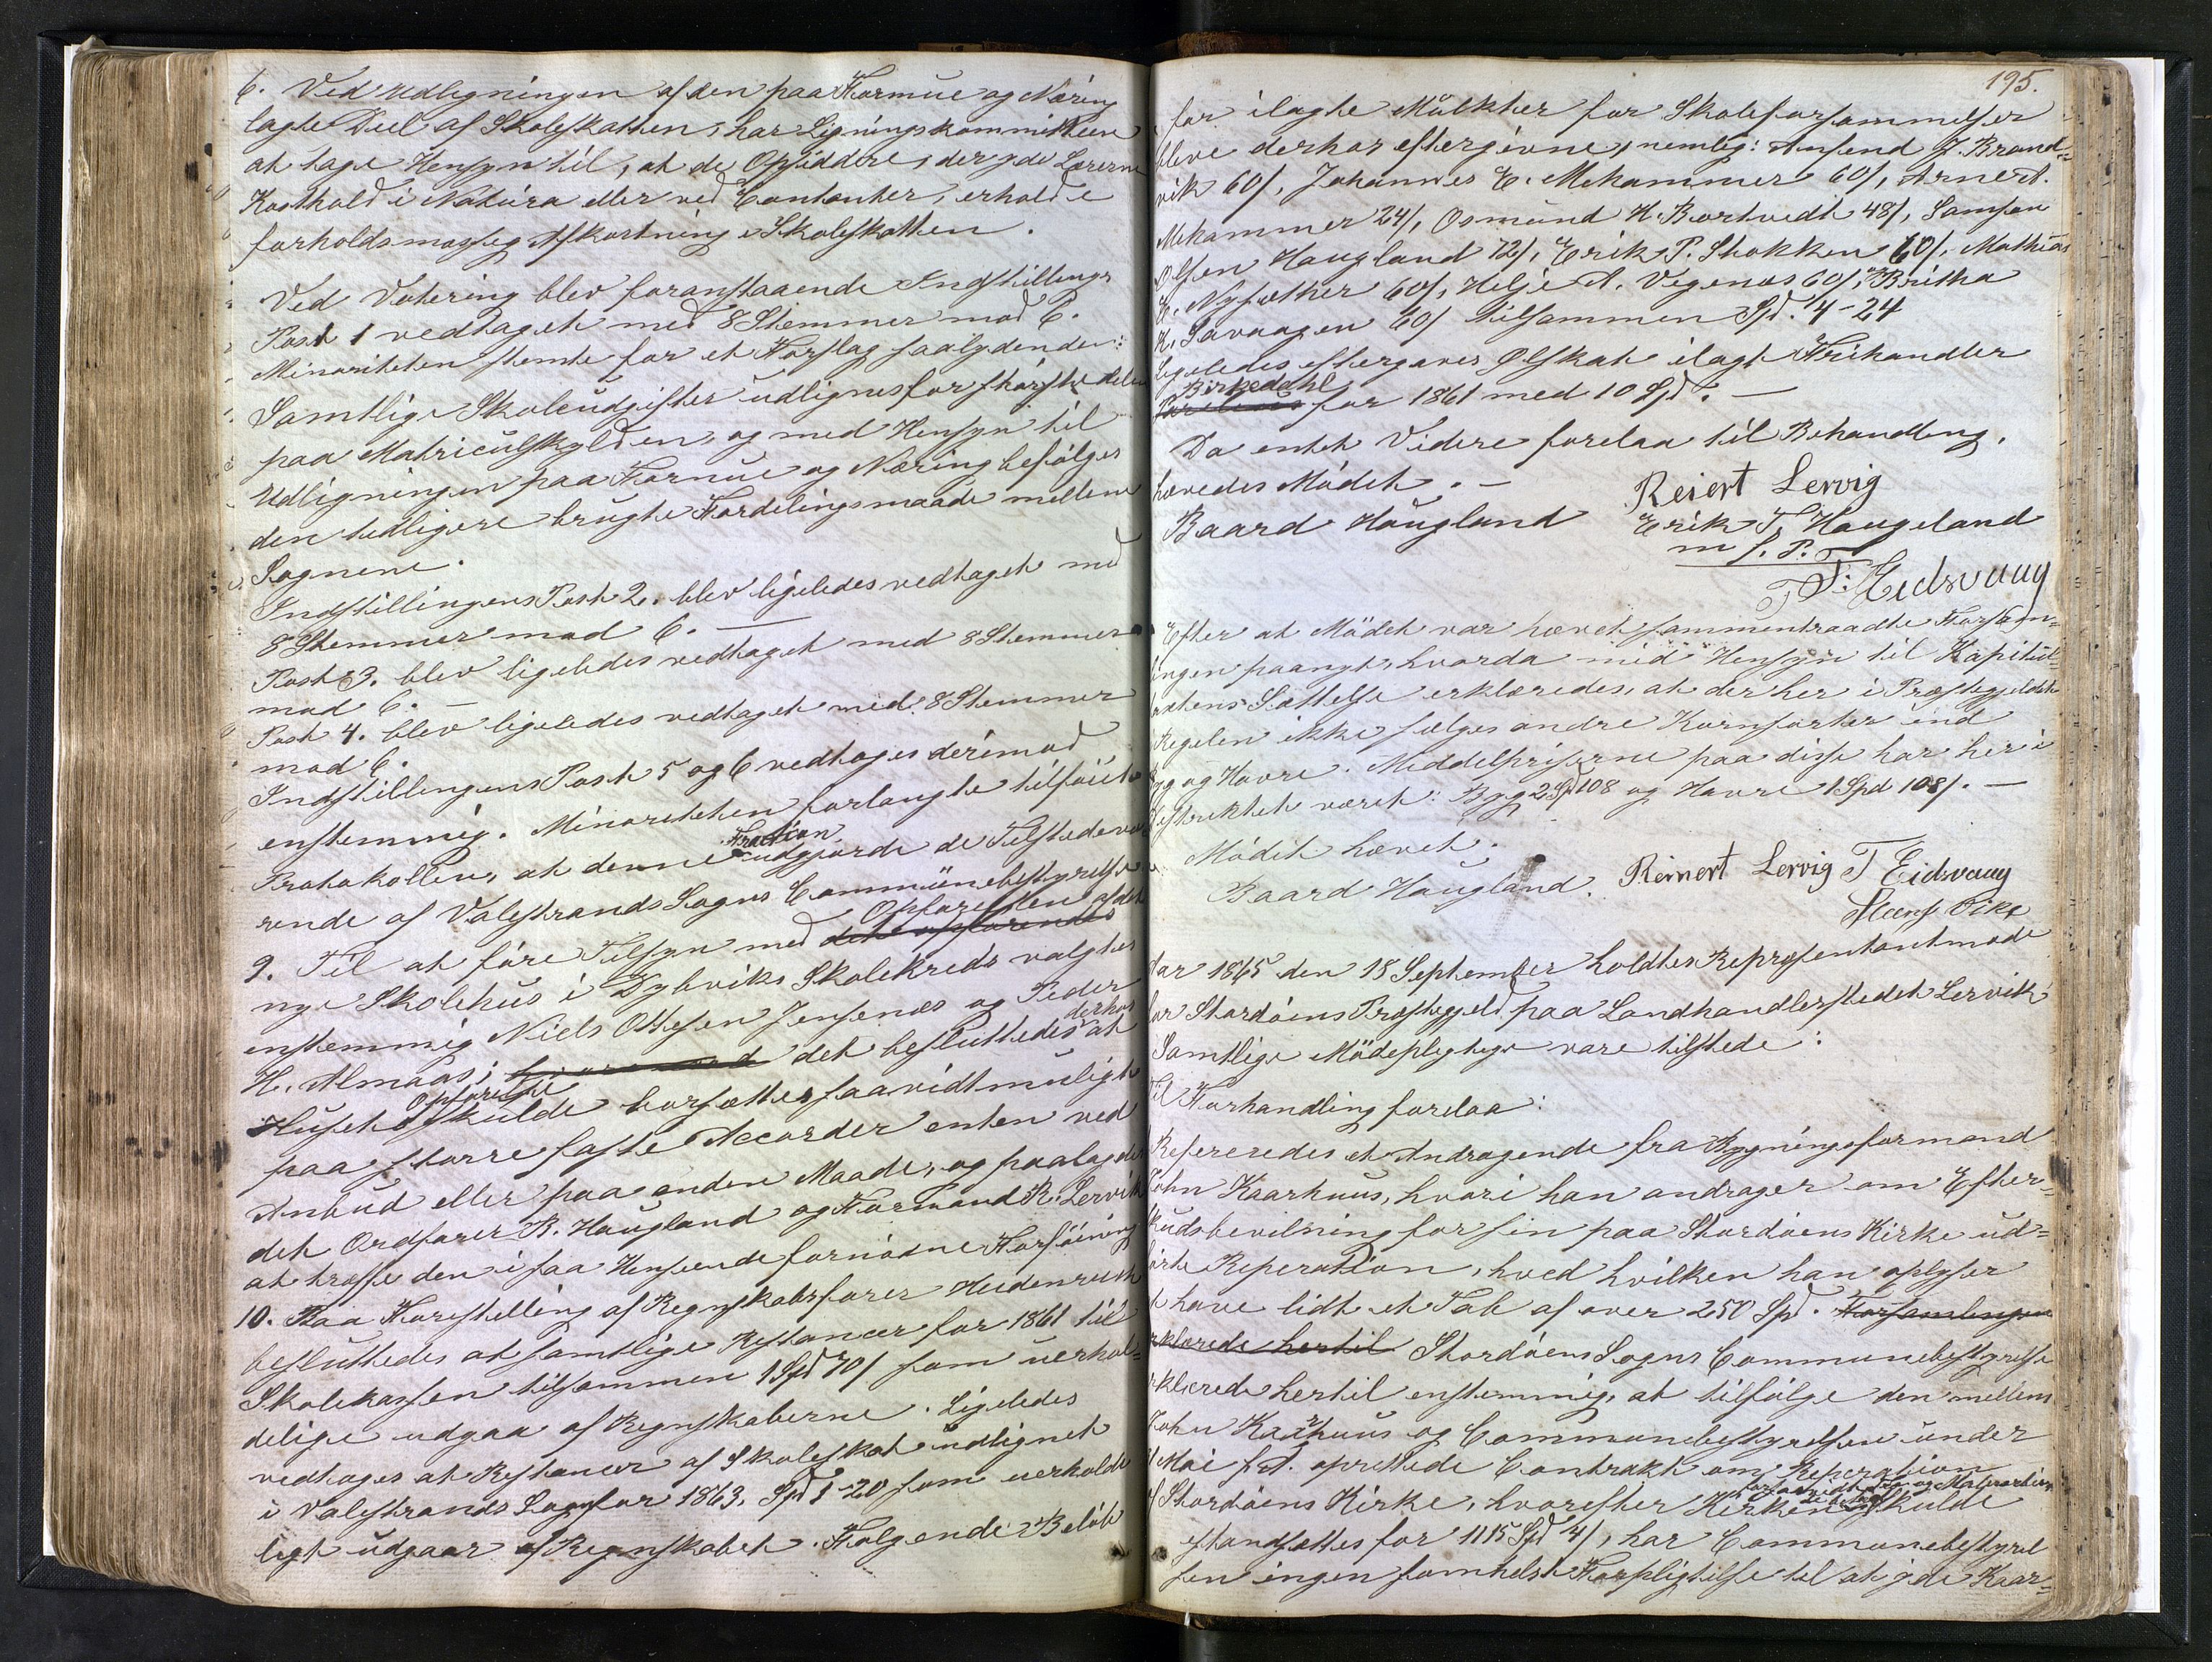 6. Ved Udligningen af den paa Formue og Næring
lagte Deel af Skoleskatten, har Ligningskommitteen
at tage Hensyn til, at de Opsiddere, der gde Lærerne
Kosthold i Natura eller ved Contanter, erholde
forholdsmæssig Afkortning i Skoleskatten.
Ved Votering blev foranstaaende Indstillings
Post 1 vedtaget med 8 Stemmer mod 6.
Minoriteten stemte for et Forslag saalydende:
Samtlige Skoleudgifter udlignes for størstedelen
paa Matriculskylden, og med Hensyn til
Udligningen paa Formue og Næring befølges
den tidligere brugte Fordelingsmaade mellem
Sognene.
Indstillingens Post 2. blev ligeledes vedtaget med
8 Stemmer mod 6.
Post 3. blev ligeledes vedtaget med 8 Stemmer
mod 6. —
Post 4. blev ligeledes vedtaget med 8 Stemmer
mod 6.
Indstillingens Post 5 og 6 vedtoges derimod
enstemmig. Minoriteten forlangte tilføiet
Protokollen, at denne Fraction udgjorde de Tilstedevæ
rende af Valestrands Sogns Communebestyrelse
9. Til at føre Tilsyn med det opførende Opførelsen af det
nye Skolehus i Dybviks Skolekreds valgtes
enstemmig Niels Ottesen Jensenæs og Peder
H. Almaas; det besluttedes derhos at
Husets Opførelse skulde bortsættes saavidt muligt
paa større faste Accorder enten ved
Anbud eller paa anden Maade, og paalagdes
det Ordfører B. Haugland og Formand R. Lervik
at træffe den i saa Henseende fornødne Forføining
10. Paa Forestilling af Regnskabsfører Heidenreich
besluttedes at samtlige Restancer for 1861 til
Skolekassen tilsammen 1 Spd 70 s som uerhol-
delige udgaa af Regnskaberne. Ligeledes
vedtoges at Restancer af Skoleskat udlignet
i Valestrands Sogn for 1863, Spd 1-20 som uerholde
ligt udgaar af Regnskabet. Følgende Beløb
195.
for ilagte Mulkter for Skoleforsømmelser
bleve derhos eftergivne, nemlig: Amsend J. Brand-
vik 60 s, Johannes E. Mehammer 60 s, Arne A.
Mehammer 24 s, Osmund H. Bortvedt 48 s, Samson
Olsen Haugland 72 s, Erik P. Stokken 60 s, Mathias
E. Nysæther 60 s, Helje A. Vegenæs 60 s, Britha
K. Sovaagen 60 s tilsammen Spd. 4-24
ligeledes eftergaves Ølskat ilagt Frihandler
Birkedahl for 1861 med 10 Spd. —
Da intet Videre forelaa til Behandling,
hævedes Mødet. —
Reiert Lervig
Baard Haugland Erik T. Haugeland
m. f. P.
T. T: Eidsvaag
Efter at Mødet var hævet, sammentraadte Forsam-
lingen paanyt, hvorda med Hensyn til Kapitul-
taxtens Sættelse erklæredes, at der her i Præstegjeldet
Regelen ikke sælges andre Kornsorter end
Byg og Havre. Middelpriserne paa disse har her i
Distriktet været: Byg 2 Spd 108 og Havre 1 Spd 108 s. —
Mødet hævet.
Baard Haugland. Reinert Lervig T Eidsvaag
Aar 1865 den 18 September holdtes Repræsentantmøde
for Stordøens Præstegjeld paa Landhandlerstedet Lervik
Samtlige Mødepligtige vare tilstede:
Til Forhandling forelaa:
Refereredes et Andragende fra Bygningsformand
John Kaarhuus, hvori han andrager om Efter-
skudsbevilning for sin paa Stordøens Kirke ud-
førte Reperation, hved hvilken han oplyser
at have lidt et Tab af over 250 Spd. Forsamlingen
erklærede hertil Stordøens Sogns Communebestyrelse
erklærede hertil enstemmig, at tilfølge den mellem
John Kaarhuus og Communebestyrelsen under
Mai f. A. oprettede Contrakt om Reperation
af Stordøens Kirke, hvorefter Kirken skulde
istandsættes for 1115 Spd 4 s, har Communebestyrel
sen ingen somhelst Forpligtelse til at gde Kaar-